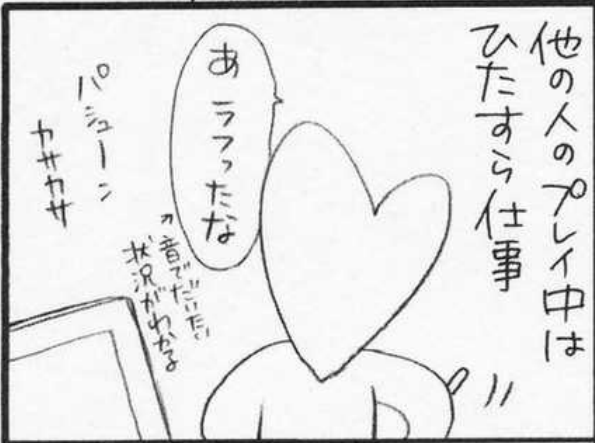 他の人のプレイ中は
ひたすら仕事
あ ラフったな
↗音でだいたい
状況がわかる
パシューン
カサカサ